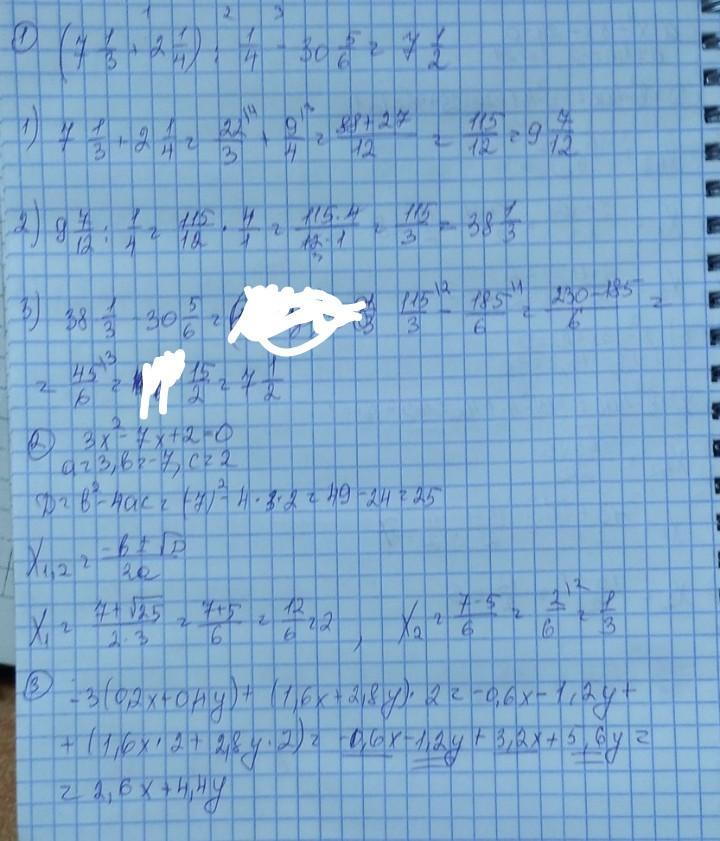 1 2 3
① (7 1/3 + 2 1/4) : 1/4 - 30 5/6 = 7 1/2
1) 7 1/3 + 2 1/4 = 22/3 + 9/4 = 88+27/12 = 115/12 = 9 7/12
2) 9 7/12 : 1/4 = 115/12 · 4/1 = 115·4/12·1 = 115/3 = 38 1/3
3) 38 1/3 - 30 5/6 = 115/3 - 185/6 = 230-185/6 =
= 45/6 = 15/2 = 7 1/2
② 3x² - 7x + 2 = 0
a = 3, b = -7, c = 2
D = b² - 4ac = (-7)² - 4·3·2 = 49 - 24 = 25
X₁,₂ = -b ± √D / 2a
X₁ = 7+√25 / 2·3 = 7+5/6 = 12/6 = 2 , X₂ = 7-5/6 = 2/6 = 1/3
③ -3(0,2x+0,4y) + (1,6x+2,8y)·2 = -0,6x - 1,2y +
+ (1,6x·2 + 2,8y·2) = -0,6x - 1,2y + 3,2x + 5,6y =
= 2,6x + 4,4y